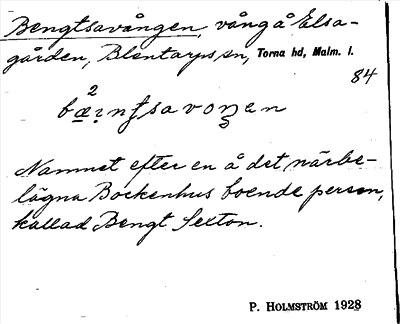 Bengtsavången, vång å Elsa-
gården, Blentarps sn, Torna hd, Malm. l.
84
2
bæi̯nʈsavoŋen
Namnet efter en å det närbe-
lägna Bockenhus boende person,
kallad Bengt Sexton.
P. HOLMSTRÖM 1928